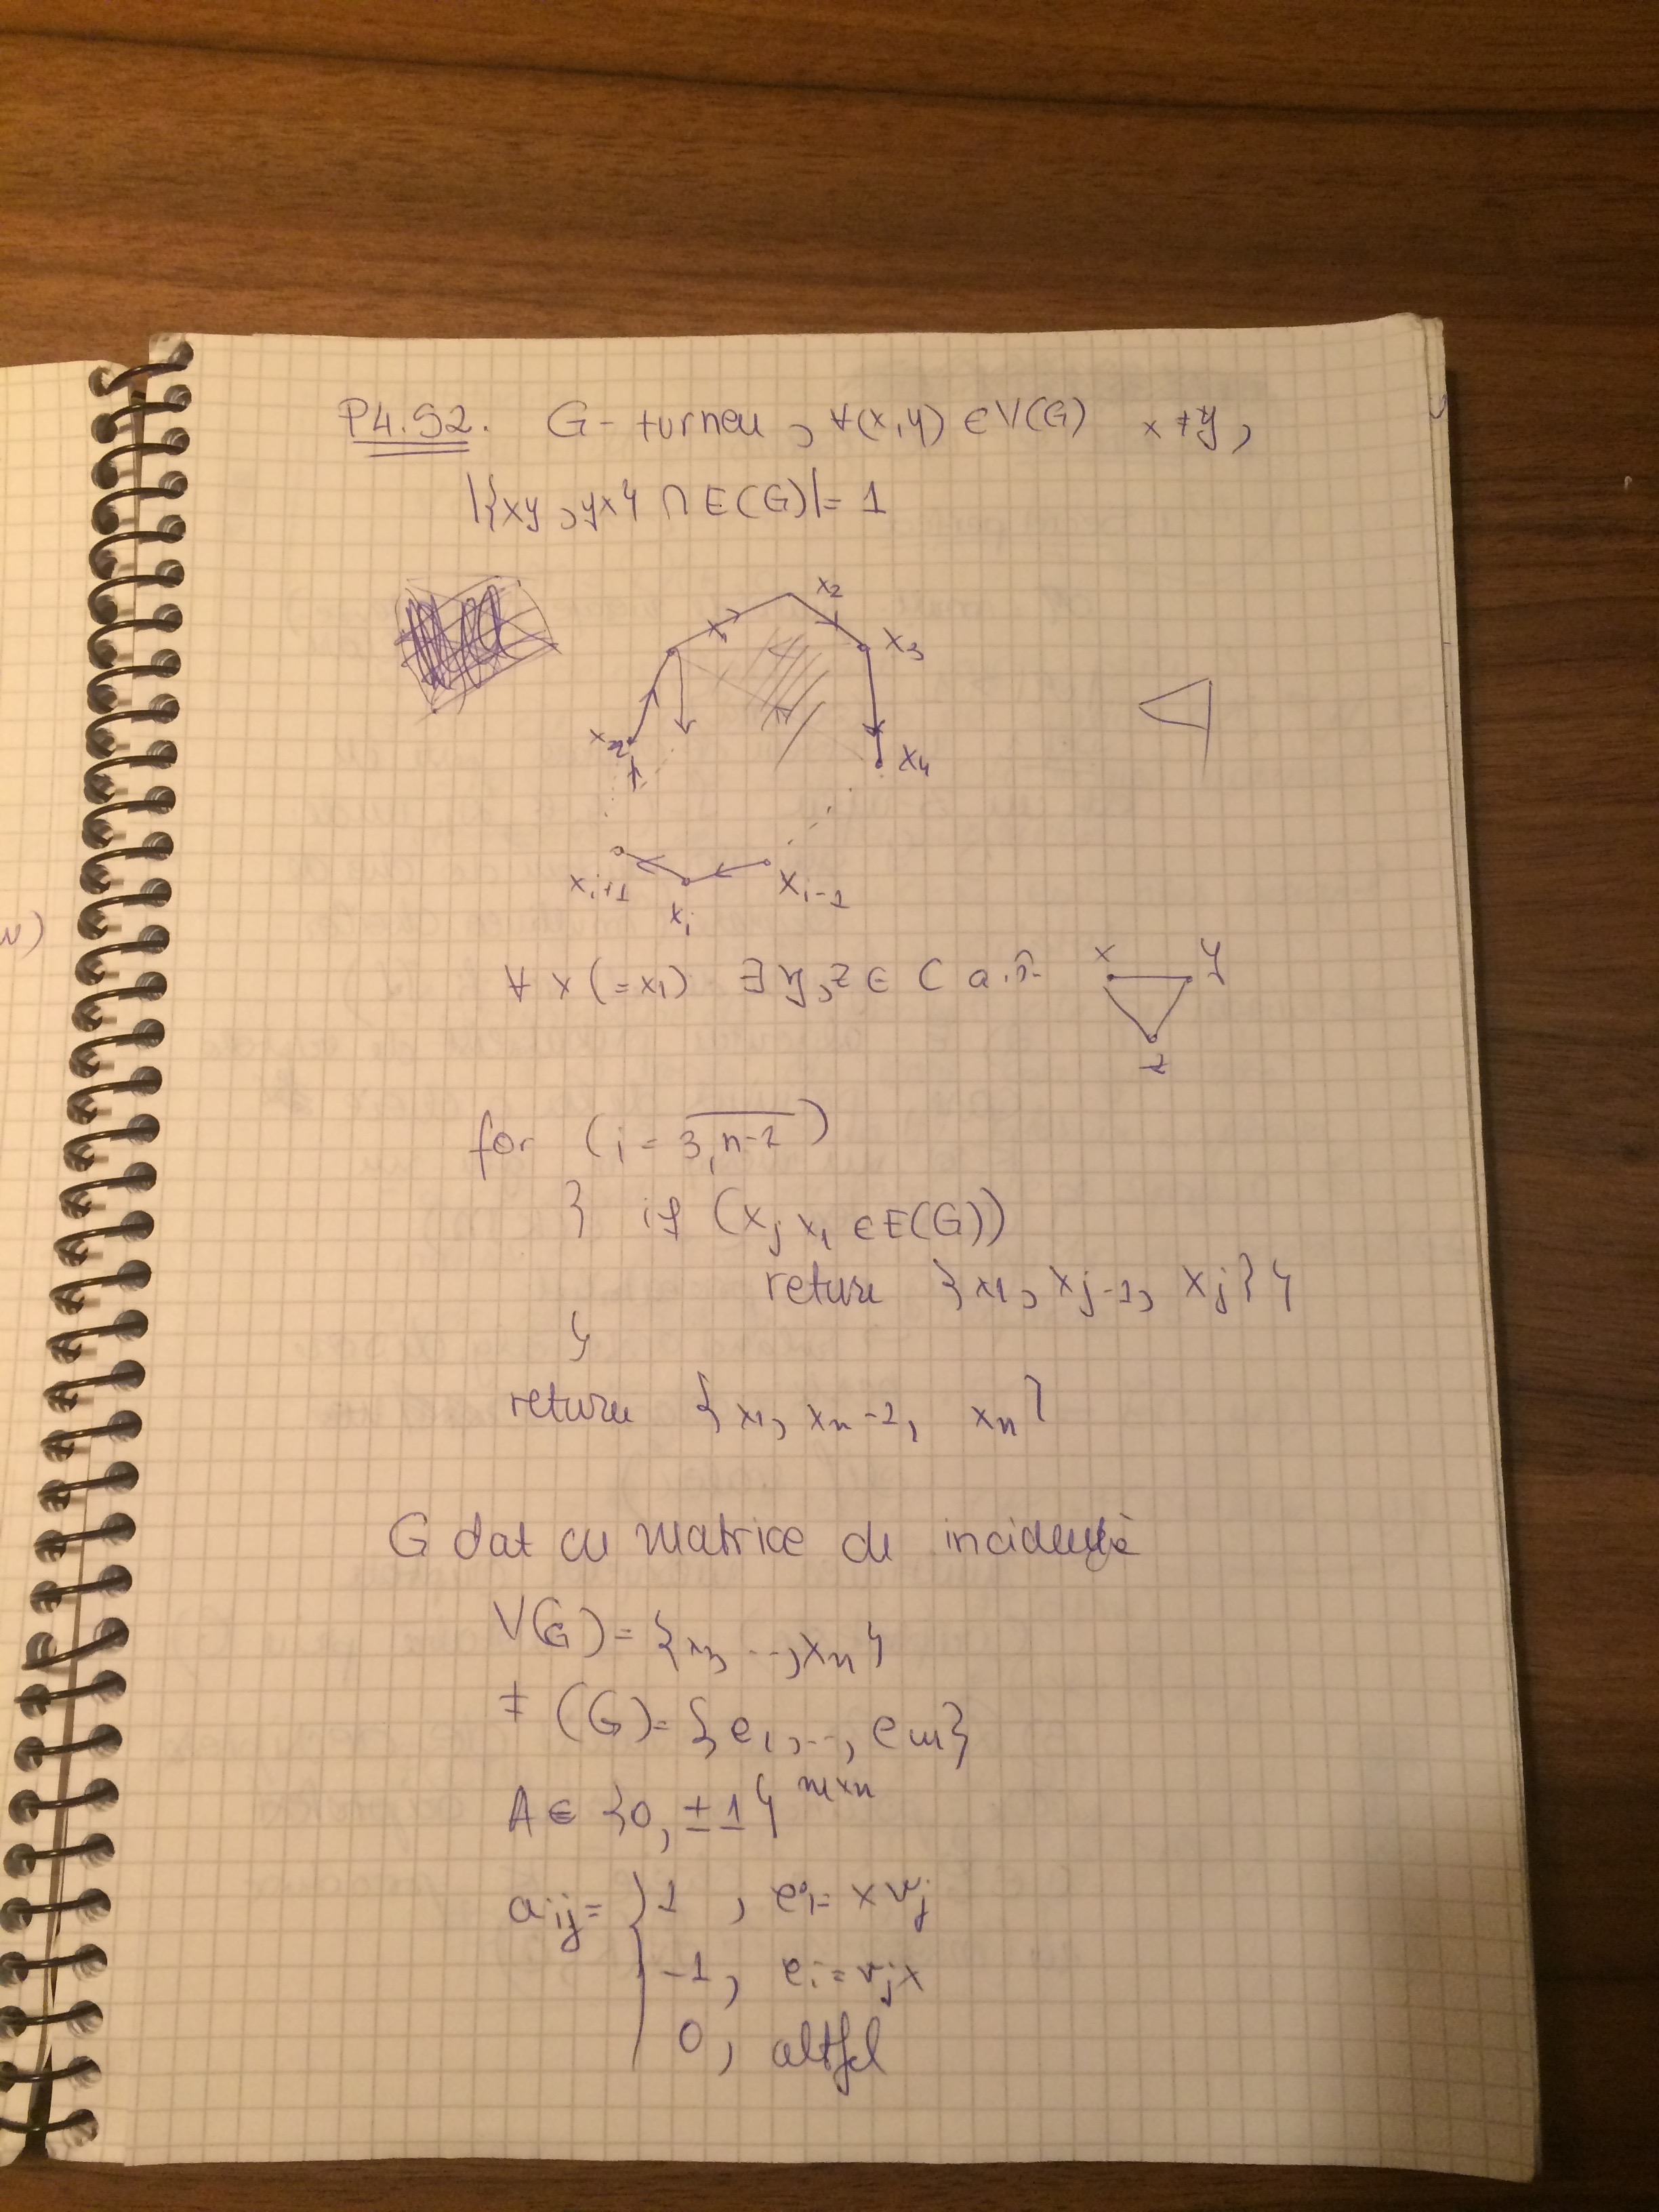 P4.S2. G- turneu, ∀(x,y) ∈ V(G) x ≠ y,
|{xy, yx} ∩ E(G)| = 1
x2
x3
x4
xn
xi+1
xi
xi-1
∀ x (=x1) ∃ y, z ∈ C a.î.
x y
z
for (i = 3,n-2)
{ if (xj x1 ∈ E(G))
return {x1, xj-1, xj} }
}
return {x1, xn-1, xn}
G dat cu matrice de incidență
V(G) = {x1, ..., xn}
E(G) = {e1, ..., em}
A ∈ {0, ±1}^m×n
aij = { 1, ei = x vj
-1, ei = vj x
0, altfel